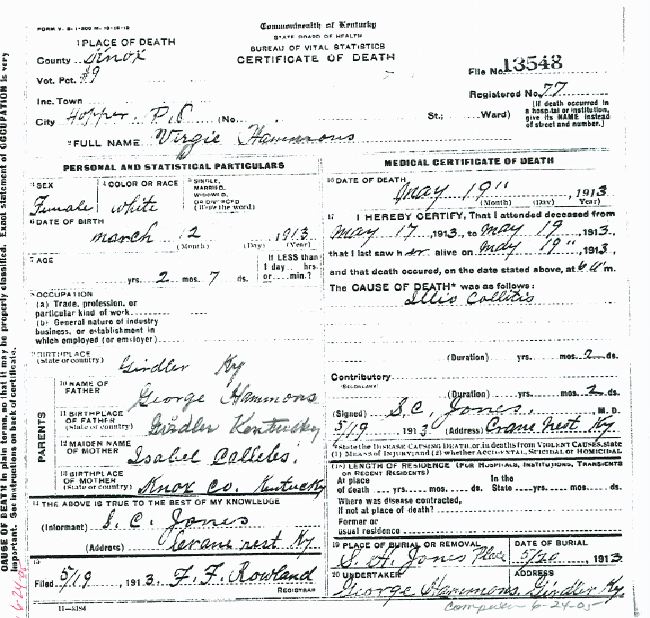 FORM V. S. 1-
Commonwealth of Kentucky
STATE BOARD OF HEALTH
BUREAU OF VITAL STATISTICS
CERTIFICATE OF DEATH
1 PLACE OF DEATH
County Knox
Vot. Pct. #9
Inc. Town
City Hopper P.O (No. St.; Ward)
File No. 13548
Registered No. 77
[If death occurred in a hospital or institution, give its NAME instead of street and number.]
2 FULL NAME Virgie Hammons
PERSONAL AND STATISTICAL PARTICULARS
3 SEX Female
4 COLOR OR RACE white
5 SINGLE, MARRIED, WIDOWED, OR DIVORCED (Write the word)
6 DATE OF BIRTH
March 12 1913
(Month) (Day) (Year)
7 AGE
yrs. 2 mos. 7 ds.
If LESS than 1 day hrs. or min.?
8 OCCUPATION
(a) Trade, profession, or particular kind of work
(b) General nature of industry business, or establishment in which employed (or employer)
9 BIRTHPLACE
(State or country) Girdler Ky
PARENTS
10 NAME OF FATHER George Hammons
11 BIRTHPLACE OF FATHER (State or country) Girdler Kentucky
12 MAIDEN NAME OF MOTHER Isabel
13 BIRTHPLACE OF MOTHER (State or country) Knox Co. Kentucky
14 THE ABOVE IS TRUE TO THE BEST OF MY KNOWLEDGE
(Informant) S. C. Jones
(Address) Crane nest Ky
15
Filed 5/19, 1913. F. F. Rowland
REGISTRAR
11-5184
MEDICAL CERTIFICATE OF DEATH
16 DATE OF DEATH
May 19" 1913
(Month) (Day) (Year)
17 I HEREBY CERTIFY, That I attended deceased from
May 17 1913, to May 19, 1913,
that I last saw her alive on May 19", 1913,
and that death occured, on the date stated above, at m.
The CAUSE OF DEATH* was as follows:
Illio Collitis
(Duration) yrs. mos. 2 ds.
Contributory
(SECONDARY)
(Duration) yrs. mos. 2 ds.
(Signed) S. C. Jones, M. D.
5/19 1913 (Address) Crane Nest Ky
*State the DISEASE CAUSING DEATH, or in deaths from VIOLENT CAUSES, state (1) MEANS OF INJURY; and (2) whether ACCIDENTAL, SUICIDAL or HOMICIDAL
18 LENGTH OF RESIDENCE (FOR HOSPITALS, INSTITUTIONS, TRANSIENTS OR RECENT RESIDENTS)
At place of death yrs. mos. ds. In the State yrs. mos. ds.
Where was disease contracted, If not at place of death?
Former or usual residence
19 PLACE OF BURIAL OR REMOVAL S. H. Jones Place
DATE OF BURIAL 5/20, 1913
20 UNDERTAKER George Hammons
ADDRESS Girdler Ky
6-24-05
CAUSE OF DEATH in plain terms, so that it may be properly classified. Exact statement of OCCUPATION is very important. See instructions on back of certificate.
6-24-05